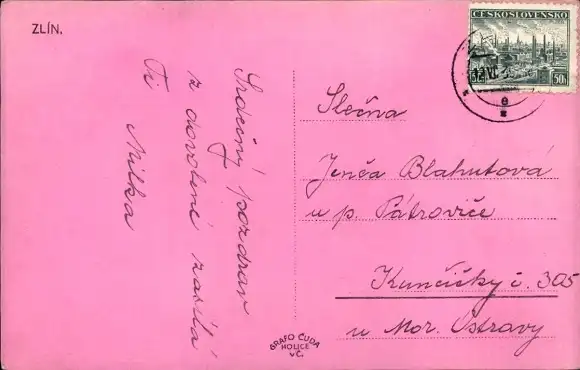 ZLÍN.
ČESKOSLOVENSKO
50h
Srdečný pozdrav
z dovolené zasílá
Ti
Milka
Slečna
Jenča Blahutová
u p. Pátroviče
Kunčičky č. 305
u Mor. Ostravy
GRAFO ČUDA
HOLICE
v Č.